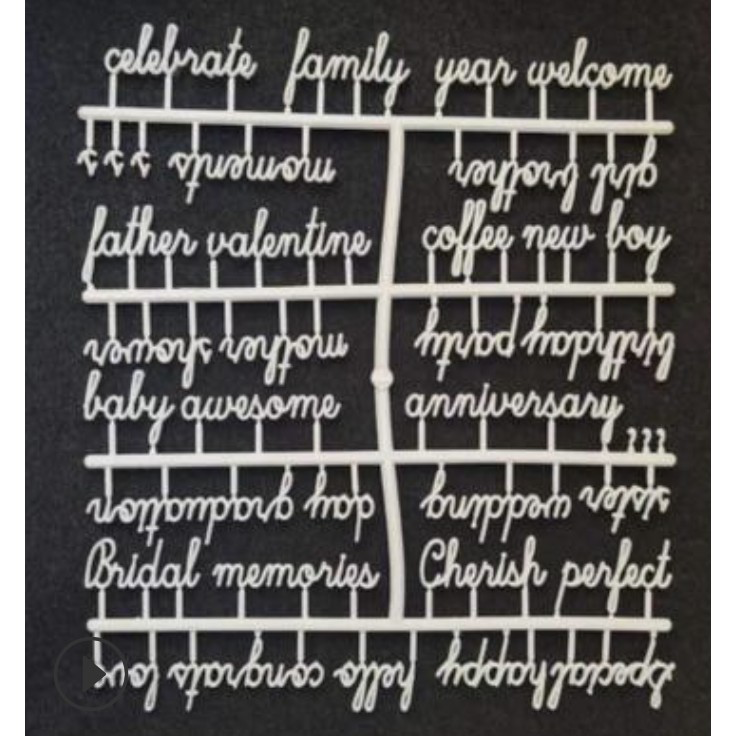 celebrate family year welcome
girl brother moments s s s
father valentine coffee new boy
birthday party mother shower
baby awesome anniversary ,,,
sister wedding day graduation
Bridal memories Cherish perfect
special happy hello congrats